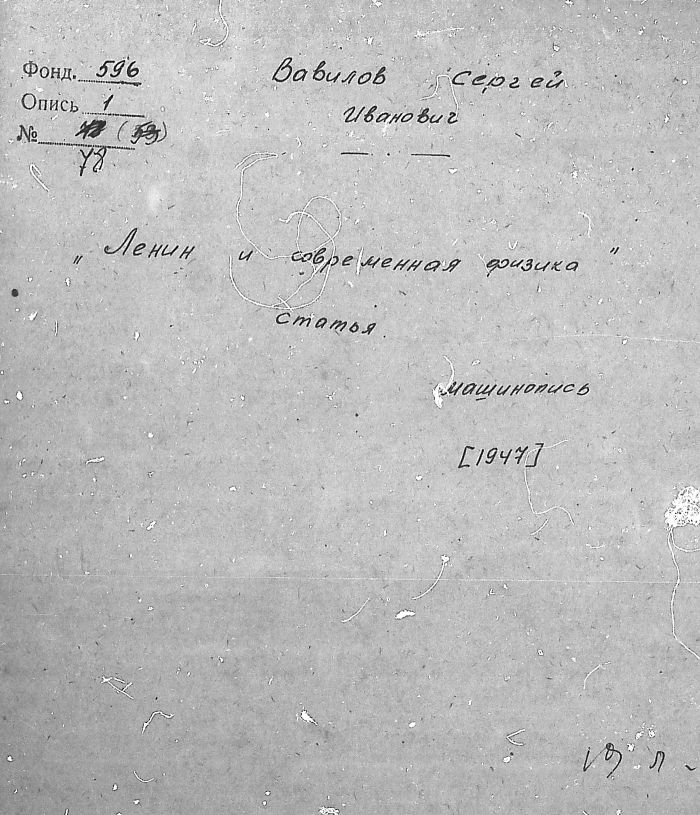 Фонд. 596
Опись 1
№
78
Вавилов Сергей
Иванович
„Ленин и современная физика"
статья
машинопись
[1947]
19 л.